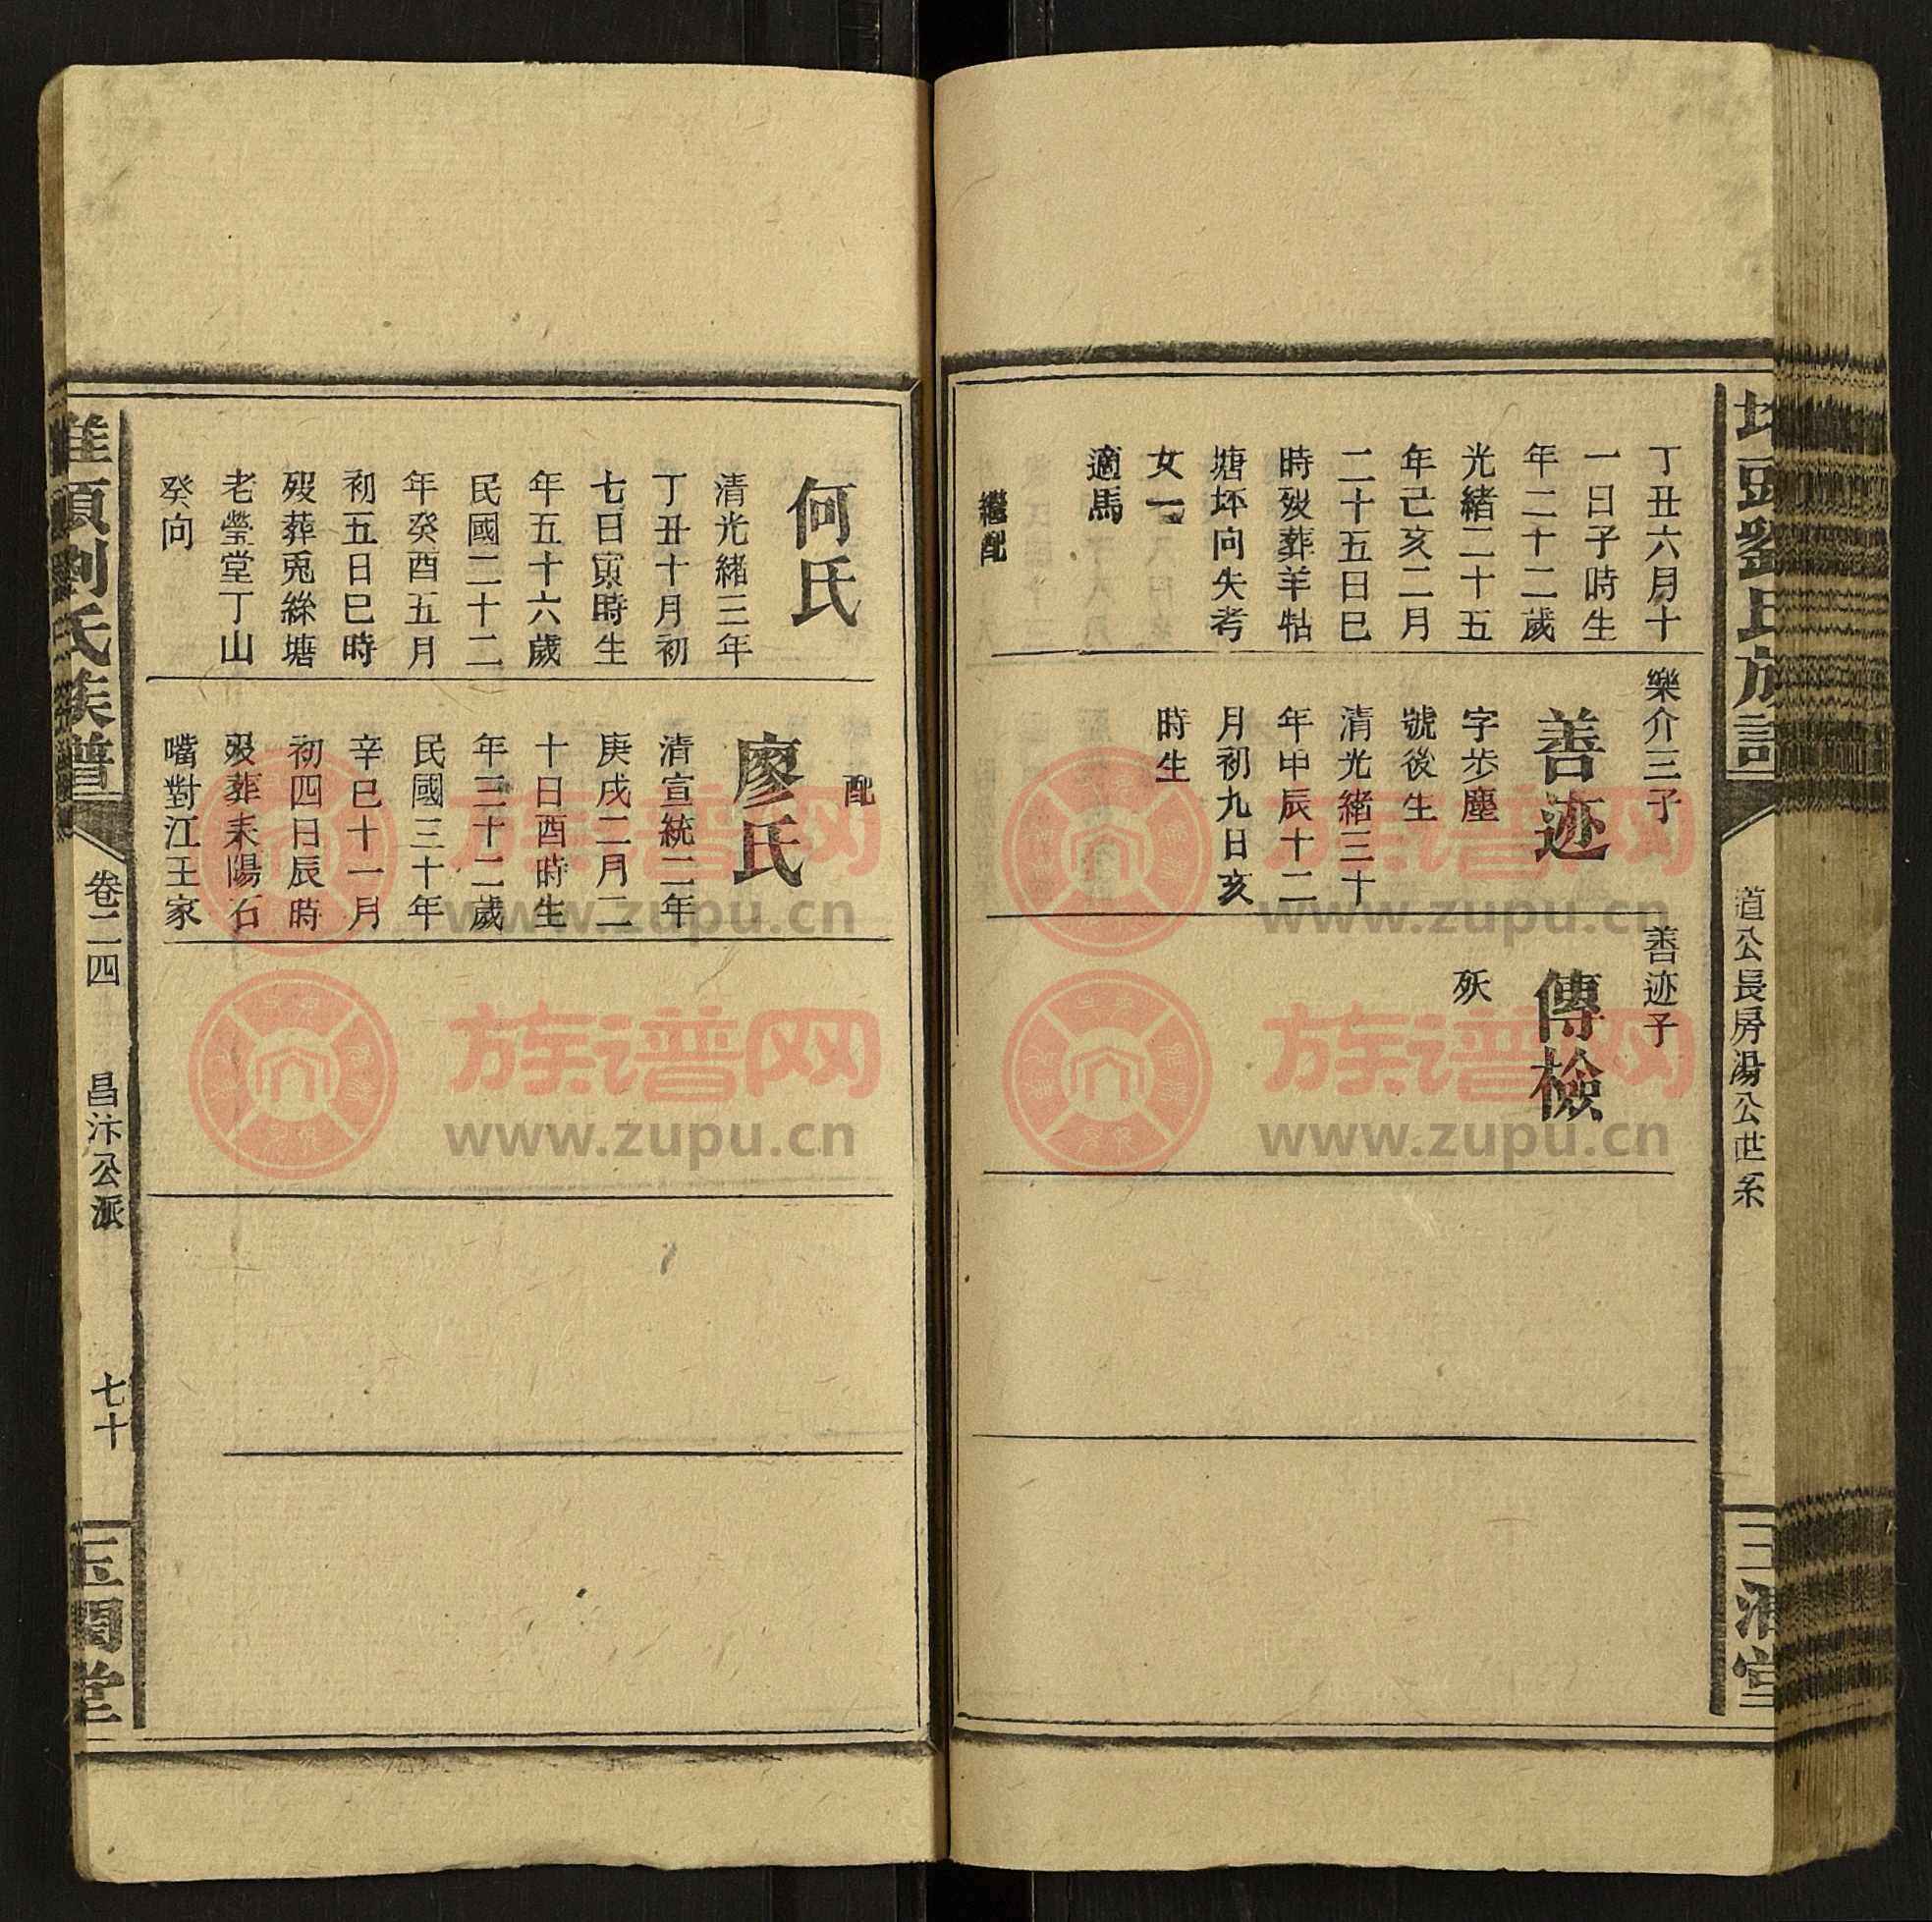 道公長房湯公世系
丁丑六月十
一日子時生
年二十二歲
光緒二十五
年己亥二月
二十五日巳
時歿葬羊牯
塘坪向失考
女一
適馬
繼配
樂介三子
善迹
字步塵
號後生
清光緒三十
年甲辰十二
月初九日亥
時生
善迹子
傳檢
殀
何氏
清光緒三年
丁丑十月初
七日寅時生
年五十六歲
民國二十二
年癸酉五月
初五日巳時
歿葬兎絲塘
老塋堂丁山
癸向
配
廖氏
清宣統二年
庚戌二月二
十日酉時生
年三十二歲
民國三十年
辛巳十一月
初四日辰時
歿葬耒陽石
嘴對江王家
劉氏族譜
卷二四
昌汴公派
七十
族谱网
www.zupu.cn
族谱网
www.zupu.cn
族谱网
www.zupu.cn
族谱网
www.zupu.cn